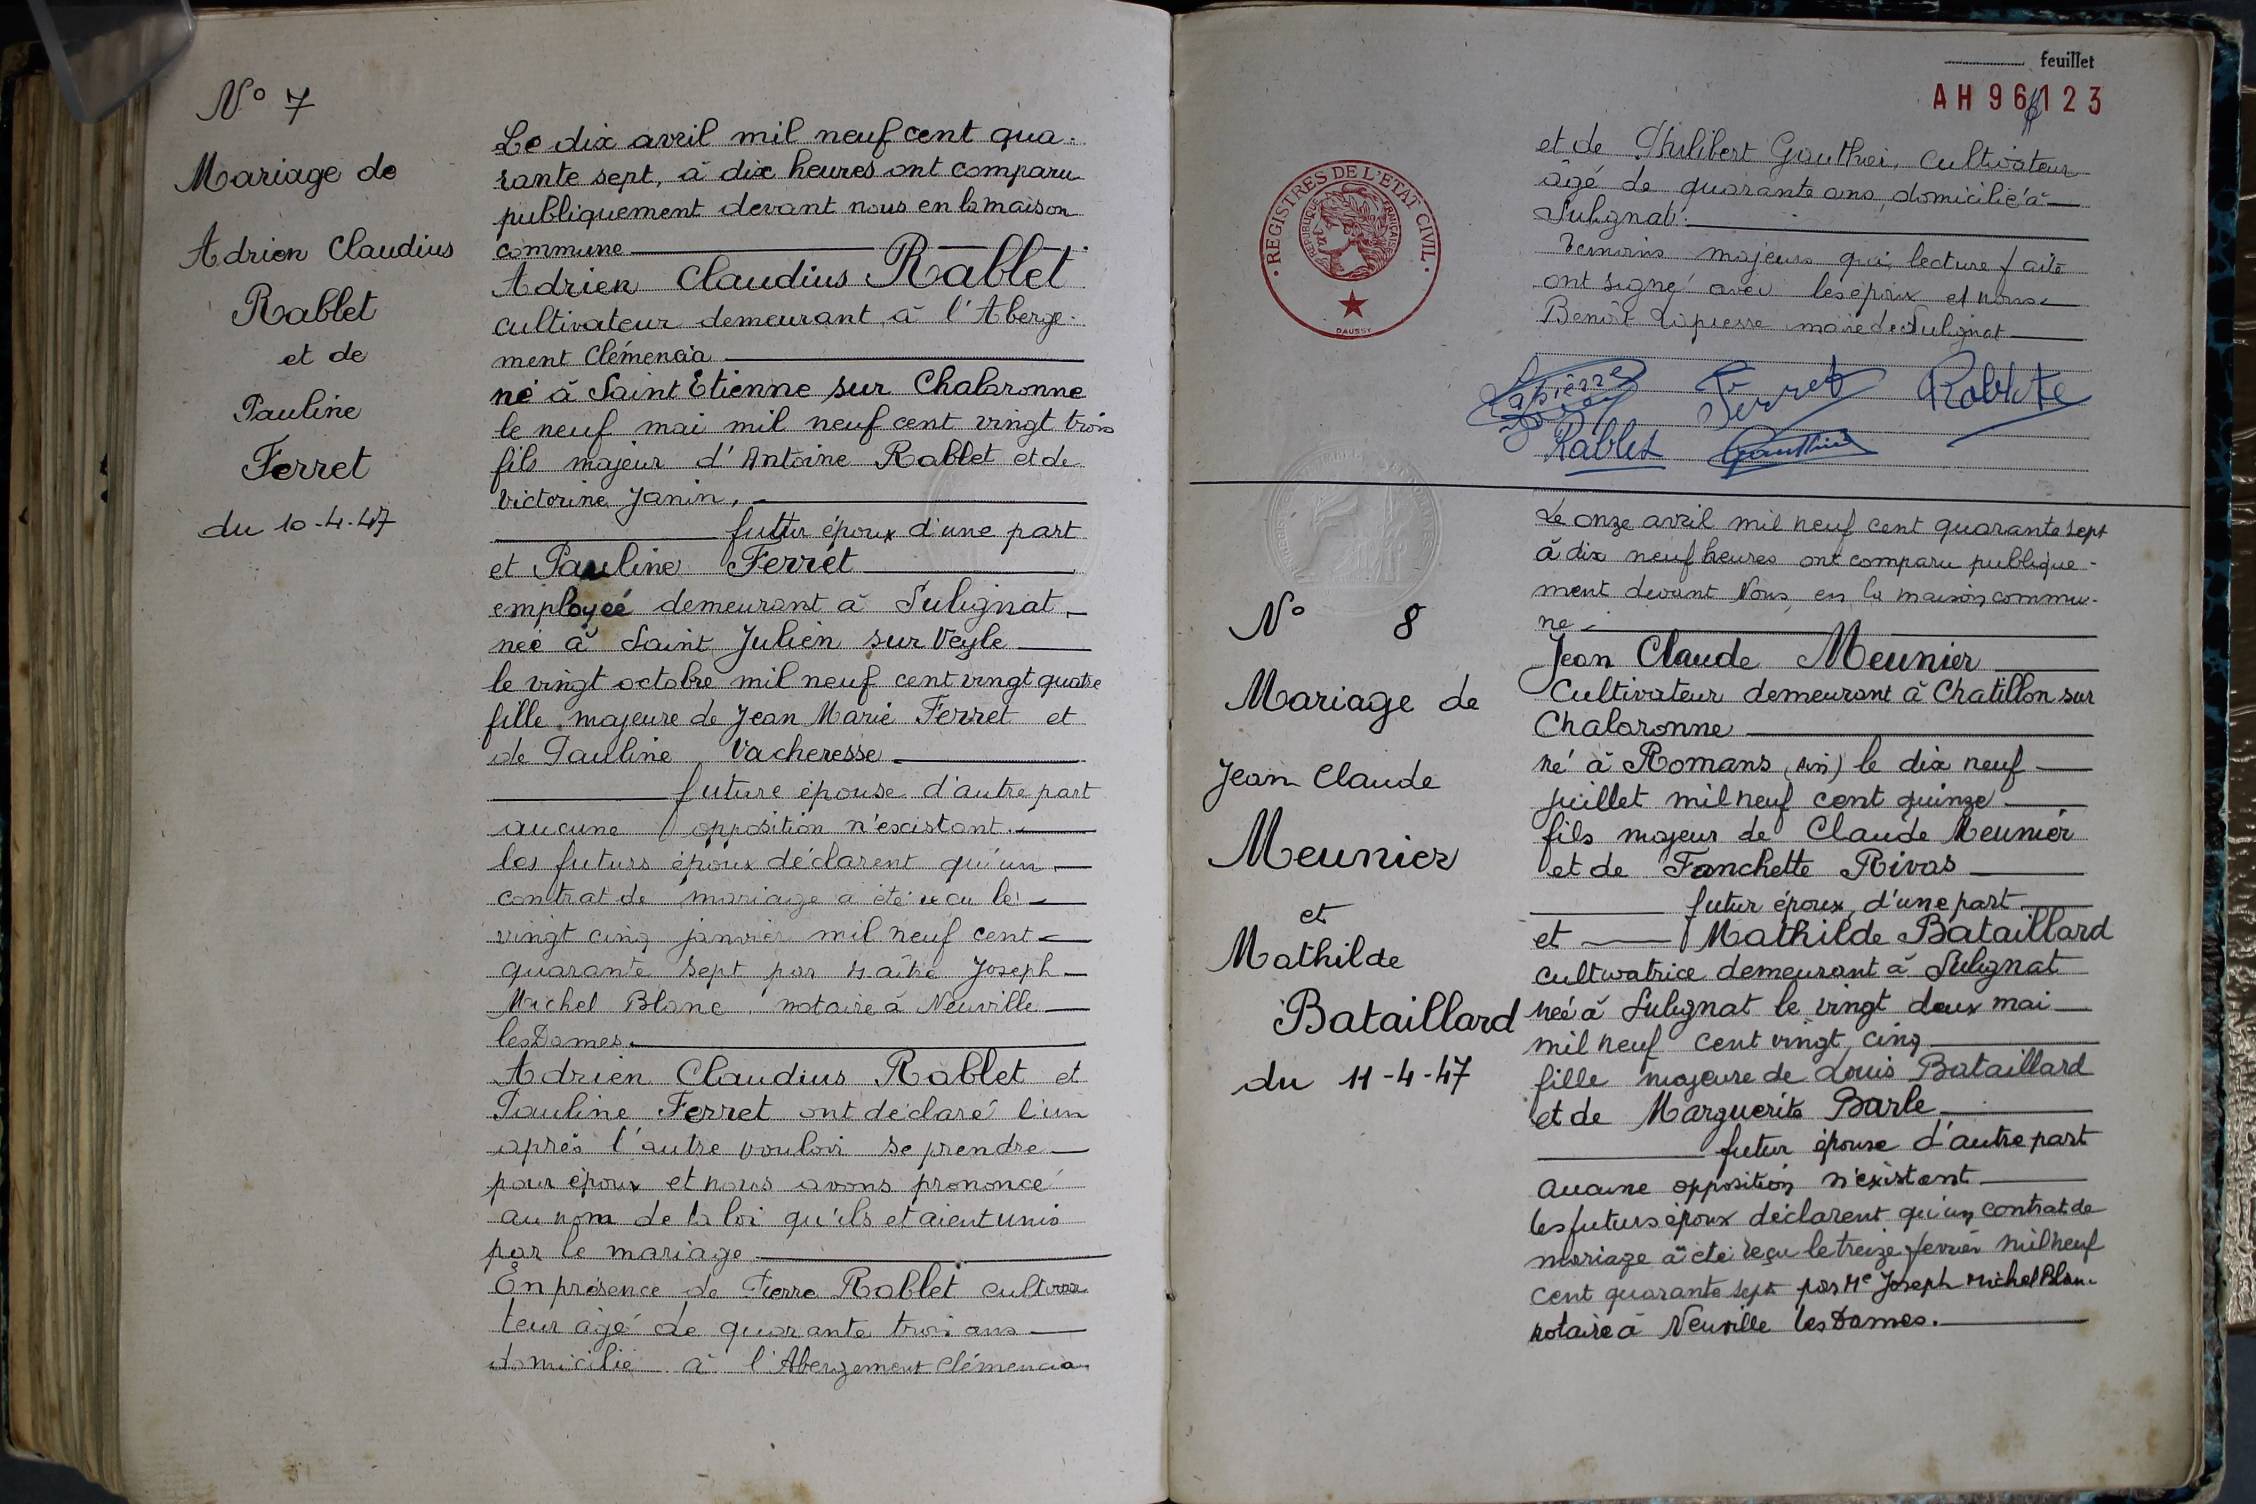 N° 7
Mariage de
Adrien Claudius
Rablet
et de
Pauline
Ferret
du 10-4-47
Le dix avril mil neuf cent qua-
rante sept, à dix heures ont comparu
publiquement devant nous en la maison
commune
Adrien Claudius Rablet
cultivateur demeurant à l'Aberge-
ment Clémencia
né à Saint Etienne sur Chalaronne
le neuf mai mil neuf cent vingt trois
fils majeur d'Antoine Rablet et de
Victorine Janin,
futur époux d'une part
et Pauline Ferret
employée demeurant à Sulignat
née à Saint Julien sur Veyle
le vingt octobre mil neuf cent vingt quatre
fille majeure de Jean Marie Ferret et
de Pauline Vacheresse
future épouse d'autre part
aucune opposition n'existant.
les futurs époux déclarent qu'un
contrat de mariage a été reçu le
vingt cinq janvier mil neuf cent
quarante sept par Maître Joseph
Michel Blanc, notaire à Neuville
les Dames.
Adrien Claudius Rablet et
Pauline Ferret ont déclaré l'un
après l'autre vouloir se prendre
pour époux et nous avons prononcé
au nom de la loi qu'ils etaient unis
par le mariage
En présence de Pierre Rablet cultiva
teur âgé de quarante trois ans
domicilié à l'Abergement Clémencia
feuillet
AH 96 123
et de Philibert Gauthier, cultivateur
âgé de quarante ans, domicilié à
Sulignat.
Témoins majeurs qui, lecture faite
ont signé avec les époux et nous
Benoît Lapierre maire de Sulignat
REGISTRES DE L'ETAT CIVIL
REPUBLIQUE FRANÇAISE
DAUSSY
Lapierre Ferret Rablet
Rablet Gauthier
N° 8
Mariage de
Jean Claude
Meunier
et
Mathilde
Bataillard
du 11-4-47
Le onze avril mil neuf cent quarante sept
à dix neuf heures ont comparu publique-
ment devant Nous, en la maison commu-
ne
Jean Claude Meunier
Cultivateur demeurant à Chatillon sur
Chalaronne
né à Romans (Ain) le dix neuf
juillet mil neuf cent quinze
fils majeur de Claude Meunier
et de Fanchette Rivas
futur époux, d'une part
et Mathilde Bataillard
cultivatrice demeurant à Sulignat
née à Sulignat le vingt deux mai
mil neuf cent vingt cinq
fille majeure de Louis Bataillard
et de Marguerite Barle
futur épouse d'autre part
Aucune opposition n'existant
les futurs époux déclarent qu'un contrat de
mariage a été reçu le treize fevrier mil neuf
cent quarante sept par Me Joseph Michel Blanc
notaire à Neuville les Dames.